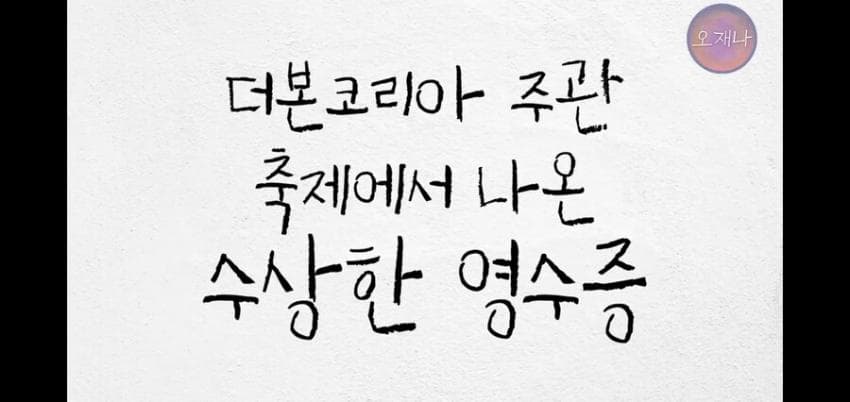 오재나
더본코리아 주관
축제에서 나온
수상한 영수증